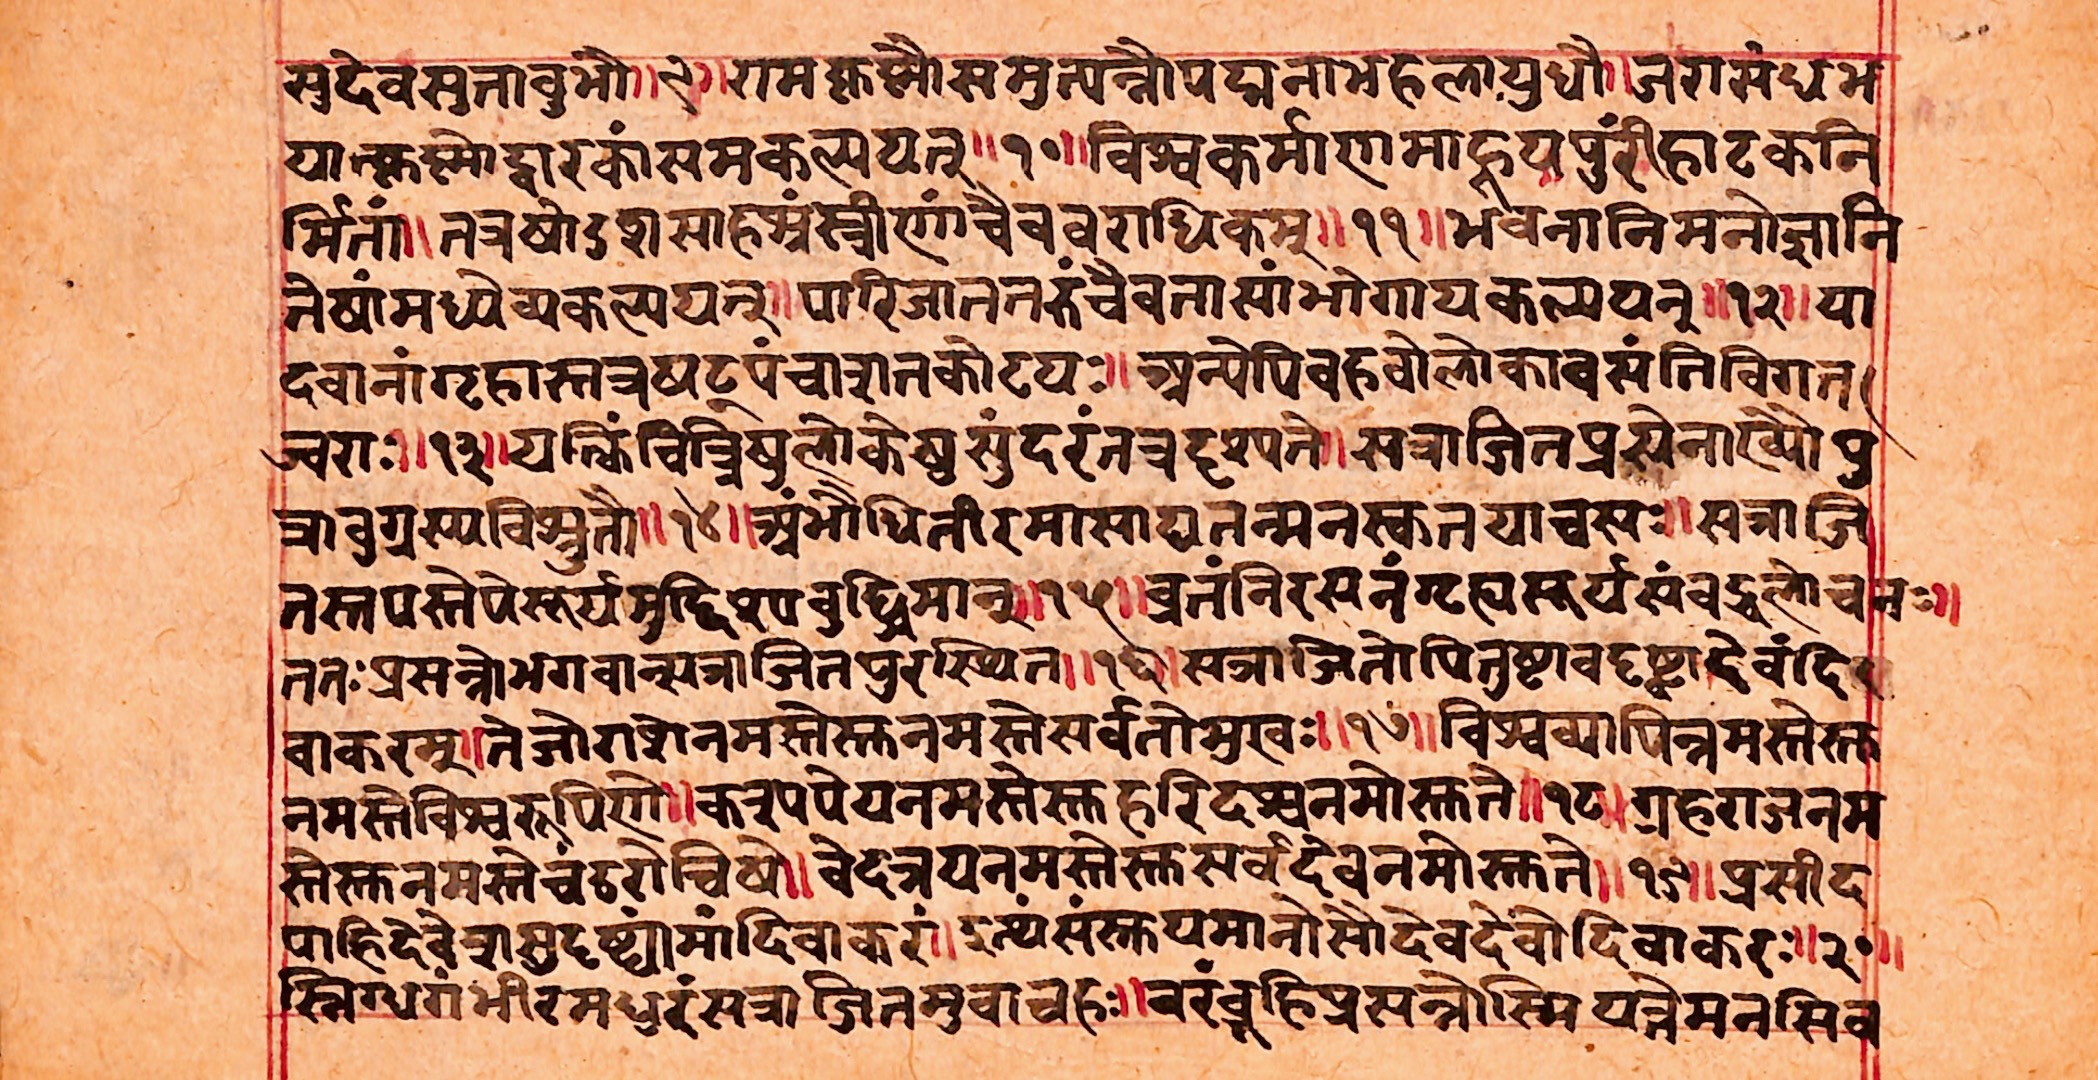 सुदेवसुतावुभौ॥९॥रामकृष्णौसमुत्पन्नौपद्मनाभहलायुधौ॥जरासंधभ
यात्कृष्णोद्वारकांसमकल्पयत्॥१०॥विश्वकर्माणमाहूयपुरीहाटकनि
र्मितां॥तत्रषोडशसाहस्रंस्त्रीणांचैववराधिकम्॥११॥भवनानिमनोज्ञानि
तेषांमध्येव्यकल्पयत्॥पारिजाततरुंचैवतासांभोगायकल्पयत्॥१२॥या
दवानांगृहास्तत्रषट्पंचाशतकोटयः॥अन्येपिबहवोलोकावसंतिविगत
ज्वराः॥१३॥यत्किंचित्रिषुलोकेषुसुंदरंतत्रदृश्यते॥सत्राजितप्रसेनाख्यौपु
त्रावुग्रस्यविश्रुतौ॥१४॥अंभोधितीरमासाद्यतन्मनस्कतयाचसः॥सत्राजि
तस्तपस्तेपेसूर्यमुद्दिश्यबुद्धिमान्॥१५॥व्रतंनिरसनंगृह्यसूर्यसंबद्धलोचनः॥
ततःप्रसन्नोभगवान्सत्राजितपुरस्थित॥१६॥सत्राजितोपितुष्टावदृष्ट्वादेवंदि
वाकरम्॥तेजोराशेनमस्तेस्तुनमस्तेसर्वतोमुखः॥१७॥विश्वव्यापिन्नमस्तेस्तु
नमस्तेविश्वरूपिणे॥काश्यपेयनमस्तेस्तुहरिदश्वनमोस्तुते॥१८॥ग्रहराजनम
स्तेस्तुनमस्तेचंडरोचिषे॥वेदत्रयनमस्तेस्तुसर्वदेवनमोस्तुते॥१९॥प्रसीद
पाहिदेवेशसुदृष्ट्यामांदिवाकरं॥इत्थंसंस्तूयमानोसौदेवदेवोदिवाकरः॥२०॥
स्निग्धगंभीरमधुरंसत्राजितमुवाचहः॥वरंब्रूहिप्रसन्नोस्मियत्तेमनसिव